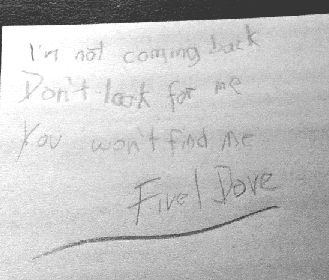 I'm not coming back
Don't look for me
You won't find me
Fivel Dove